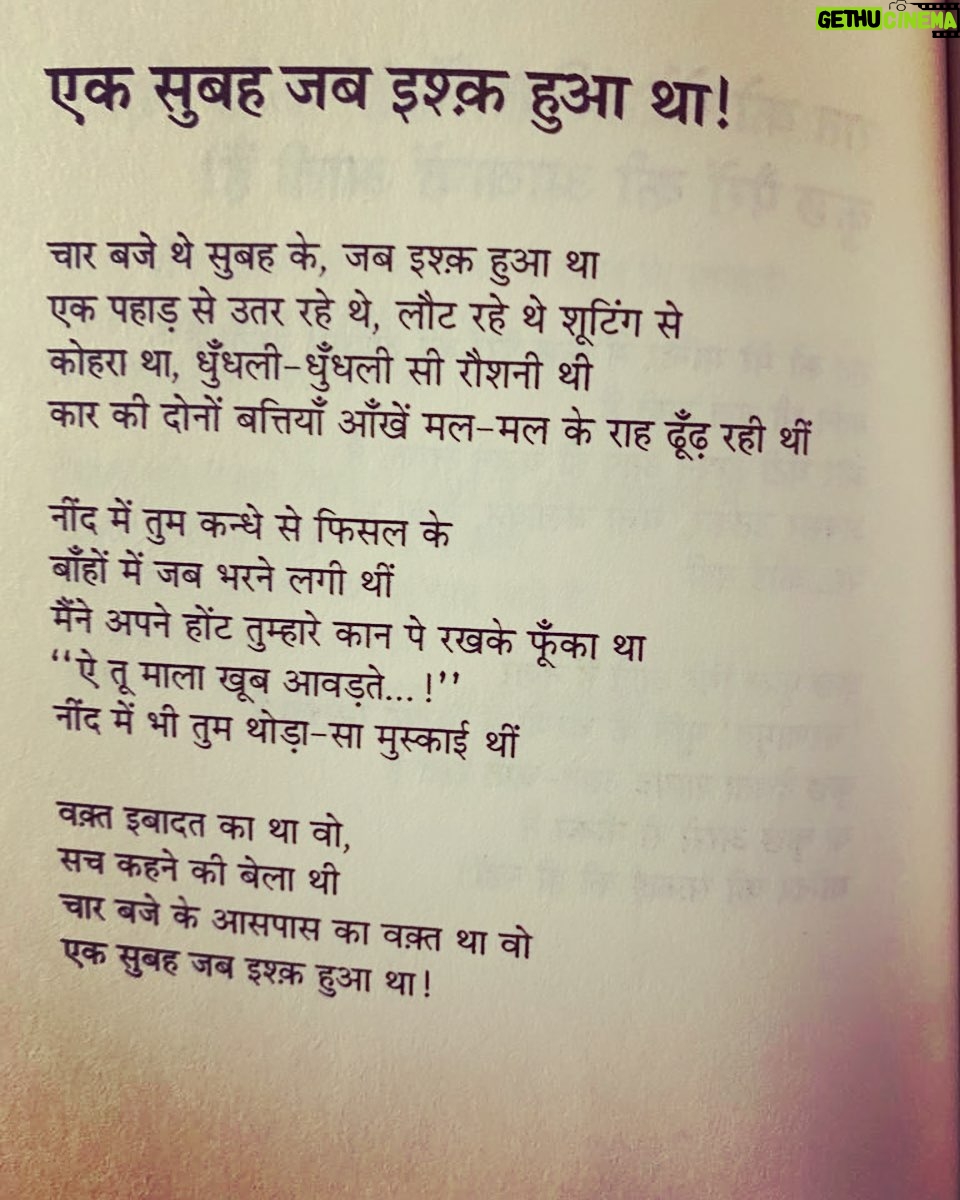 GETHUCINEMA
एक सुबह जब इश्क़ हुआ था!
चार बजे थे सुबह के, जब इश्क़ हुआ था
एक पहाड़ से उतर रहे थे, लौट रहे थे शूटिंग से
कोहरा था, धुँधली-धुँधली सी रौशनी थी
कार की दोनों बत्तियाँ आँखें मल-मल के राह ढूँढ़ रही थीं
नींद में तुम कन्धे से फिसल के
बाँहों में जब भरने लगी थीं
मैंने अपने होंट तुम्हारे कान पे रखके फूँका था
“ऐ तू माला खूब आवड़ते...!”
नींद में भी तुम थोड़ा-सा मुस्काई थीं
वक़्त इबादत का था वो,
सच कहने की बेला थी
चार बजे के आसपास का वक़्त था वो
एक सुबह जब इश्क़ हुआ था!